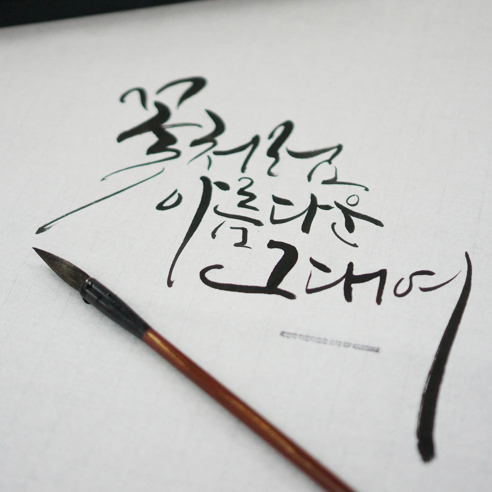 꽃처럼
아름다운
그대여